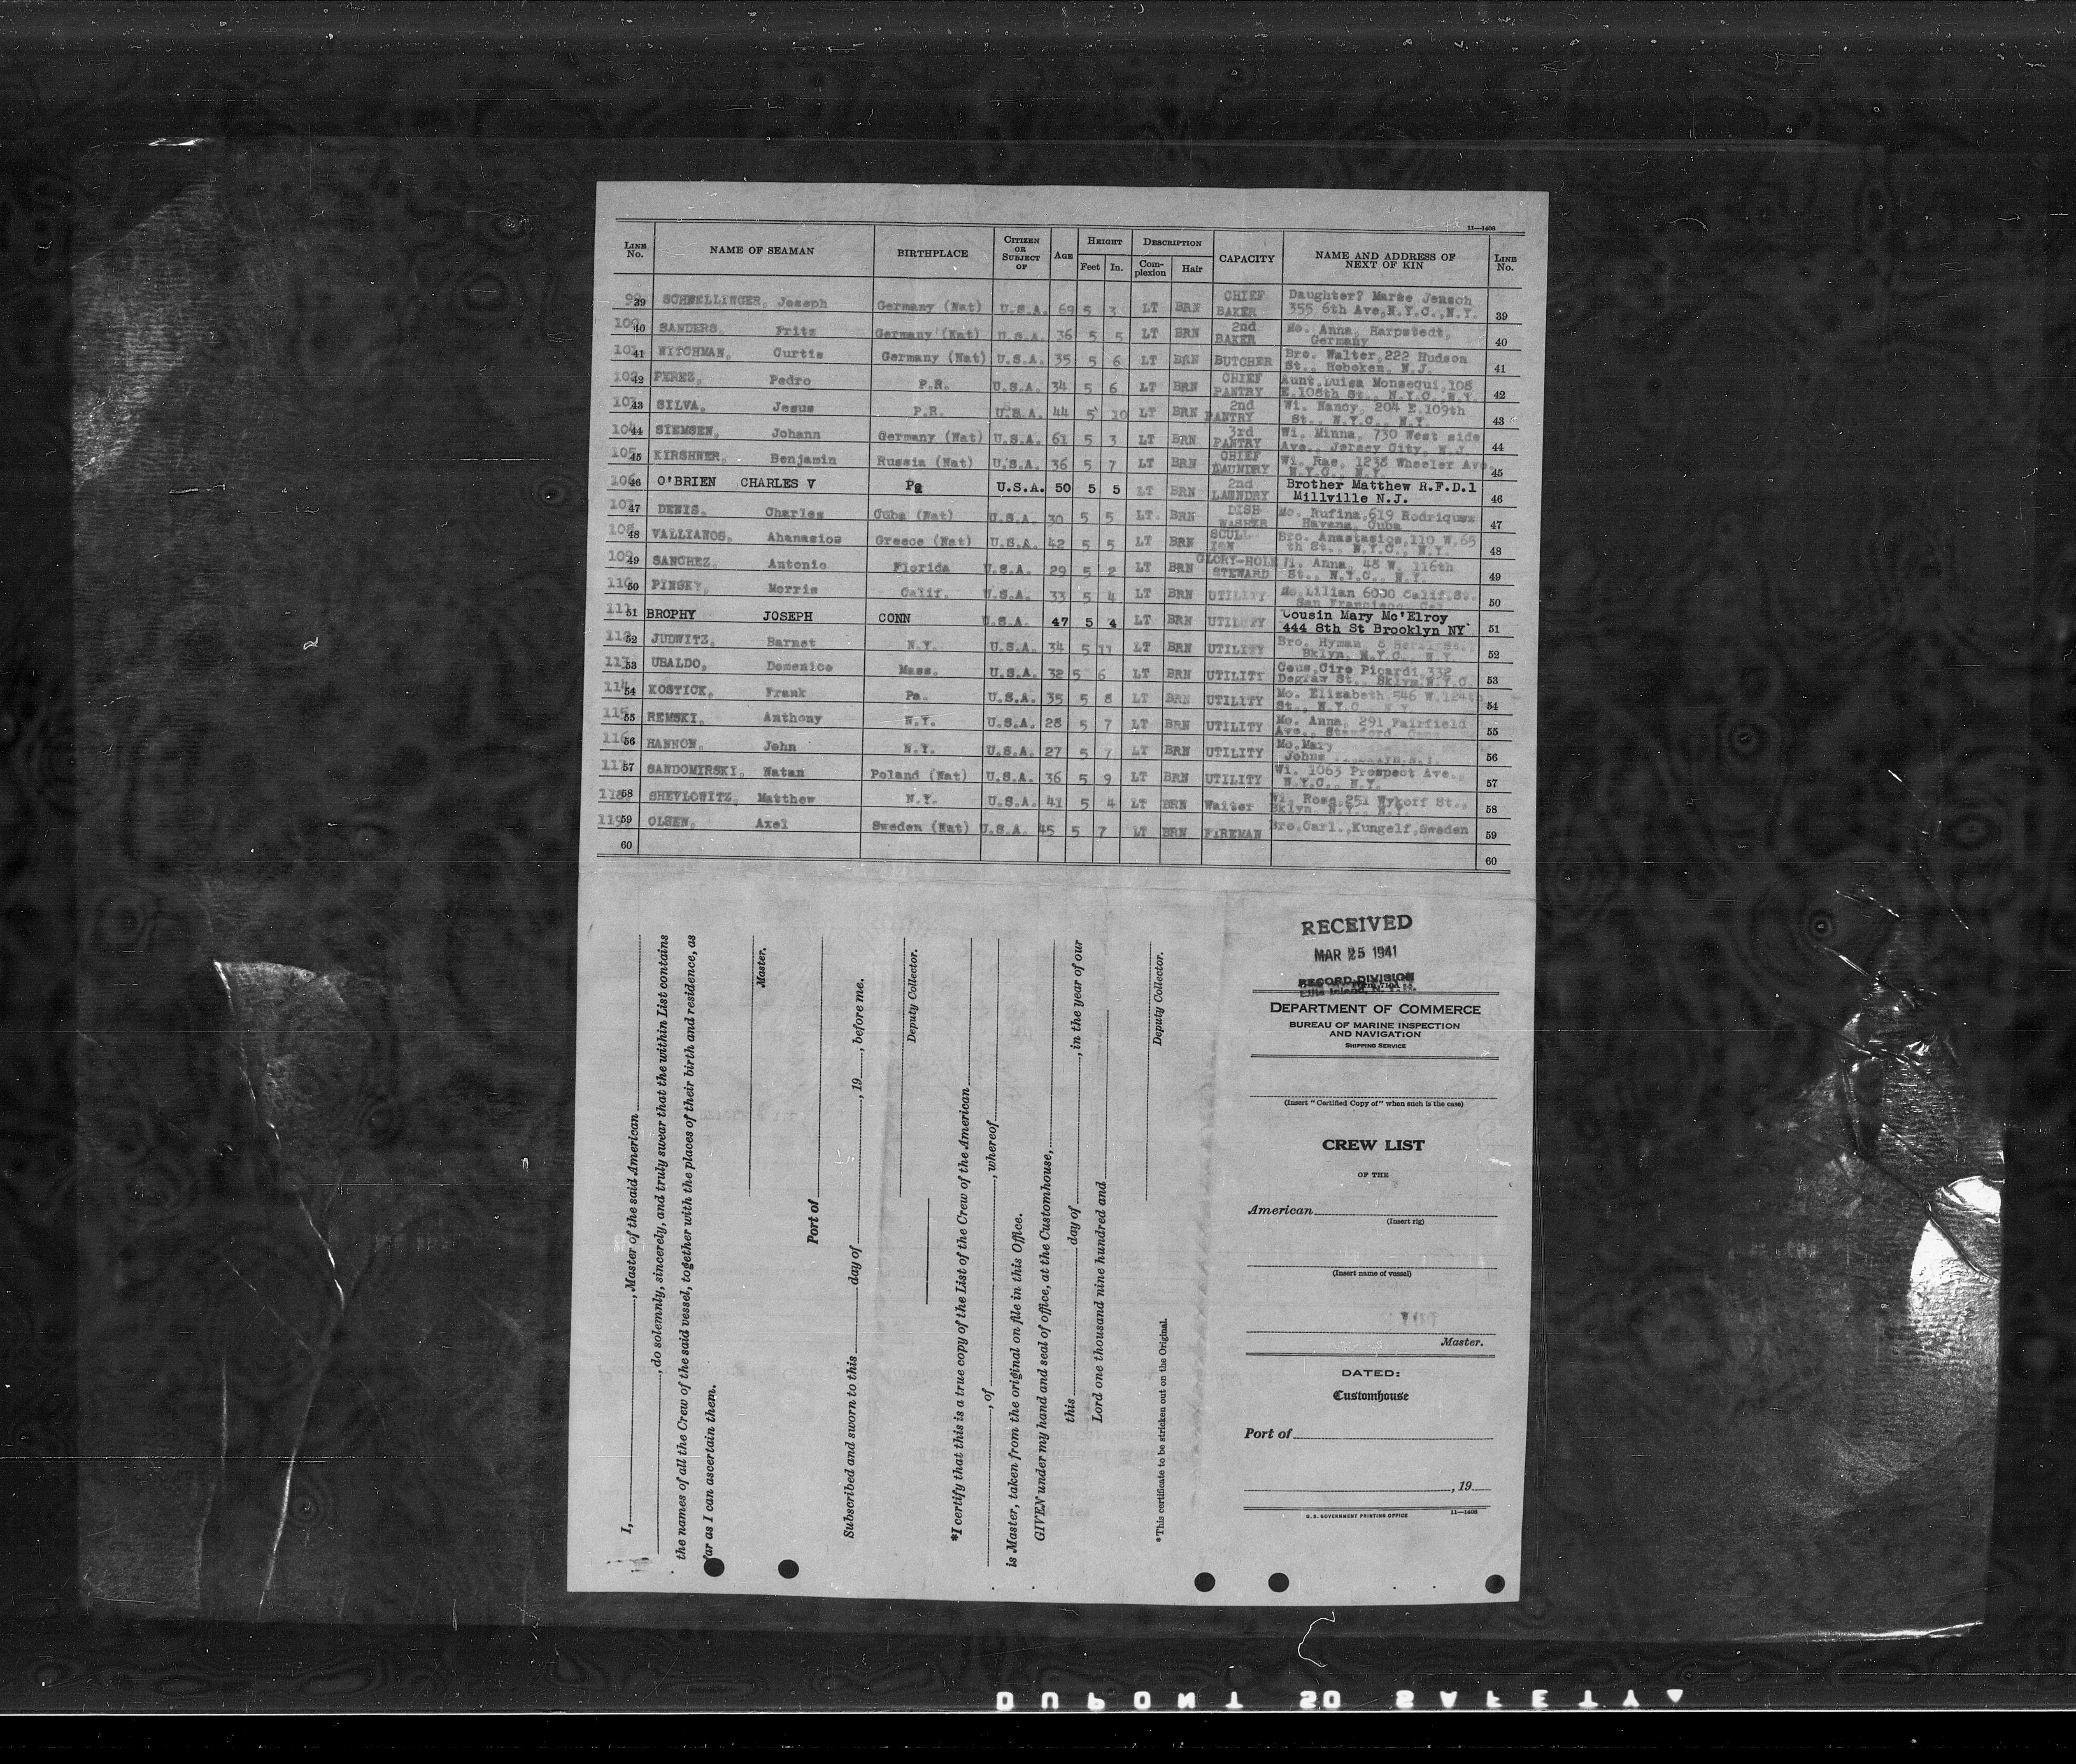 11—1406
LINE No. NAME OF SEAMAN BIRTHPLACE CITIZEN OR SUBJECT OF AGE HEIGHT Feet In. DESCRIPTION Com-plexion Hair CAPACITY NAME AND ADDRESS OF NEXT OF KIN LINE No.
99 39 SCHNELLINGER, Joseph Germany (Nat) U.S.A. 69 5 3 LT BRN CHIEF BAKER Daughter? Maree Jensch 355 6th Ave,N.Y.C.,N.Y. 39
100 40 SANDERS, Fritz Germany (Nat) U.S.A. 36 5 5 LT BRN 2nd BAKER Mo. Anna, Harpstedt, Germany 40
101 41 WITCHMAN, Curtis Germany (Nat) U.S.A. 35 5 6 LT BRN BUTCHER Bro. Walter,222 Hudson St., Hoboken, N.J. 41
102 42 PEREZ, Pedro P.R. U.S.A. 34 5 6 LT BRN CHIEF PANTRY Aunt.Luisa Monsequi,108 E.108th St., N.Y.C., N.Y. 42
103 43 SILVA, Jesus P.R. U.S.A. 44 5 10 LT BRN 2nd PANTRY Wi. Nancy, 204 E.109th St., N.Y.C., N.Y. 43
104 44 SIEMSEN, Johann Germany (Nat) U.S.A. 61 5 3 LT BRN 3rd PANTRY Wi. Minna, 730 West side Ave., Jersey City, N.J. 44
105 45 KIRSHNER, Benjamin Russia (Nat) U.S.A. 36 5 7 LT BRN CHIEF LAUNDRY Wi. Rae, 1238 Wheeler Ave. N.Y.C., N.Y. 45
106 46 O'BRIEN CHARLES V Pa U.S.A. 50 5 5 LT BRN 2nd LAUNDRY Brother Matthew R.F.D.1 Millville N.J. 46
107 47 DENIS, Charles Cuba (Nat) U.S.A. 30 5 5 LT. BRN DISH WASHER Mo. Rufina,619 Rodriquez Havana, Cuba 47
108 48 VALLIANOS, Ahanasios Greece (Nat) U.S.A. 42 5 5 LT BRN SCULL ION Bro. Anastasios,110 W.65 th St., N.Y.C., N.Y. 48
109 49 SANCHEZ, Antonio Florida U.S.A. 29 5 2 LT BRN GLORY-HOLE STEWARD Wi. Anna, 48 W. 116th St., N.Y.C., N.Y. 49
110 50 PINSKY, Morris Calif. U.S.A. 33 5 4 LT BRN UTILITY Mo.Lilian 6000 Calif.St. San Francisco, Cal 50
111 51 BROPHY JOSEPH CONN U.S.A. 47 5 4 LT BRN UTILITY Cousin Mary Mc'Elroy 444 8th St Brooklyn NY 51
112 52 JUDWITZ, Barnet N.Y. U.S.A. 34 5 11 LT BRN UTILITY Bro. Hyman 8 St., Bklyn, N.Y.C. N.Y. 52
113 53 UBALDO, Domenico Mass. U.S.A. 32 5 6 LT BRN UTILITY Cous.Ciro Picardi,332 Degraw St., Bklyn.N.Y.C. 53
114 54 KOSTICK, Frank Pa. U.S.A. 35 5 8 LT BRN UTILITY Mo. Elizabeth 546 W.124th St., N.Y.C. N.Y. 54
115 55 REMSKI, Anthony N.Y. U.S.A. 28 5 7 LT BRN UTILITY Mo. Anna, 291 Fairfield Ave., Stamford, 55
116 56 HANNON, John N.Y. U.S.A. 27 5 7 LT BRN UTILITY Mo.Mary Johns N.Y. 56
117 57 SANDOMIRSKI, Natan Poland (Nat) U.S.A. 36 5 9 LT BRN UTILITY Wi. 1063 Prospect Ave., N.Y.C., N.Y. 57
118 58 SHEVLOWITZ, Matthew N.Y. U.S.A. 41 5 4 LT BRN Waiter Wi. Rose,251 Wykoff St., Bklyn. N.Y., N.Y. 58
119 59 OLSEN, Axel Sweden (Nat) U.S.A. 45 5 7 LT BRN FIREMAN Bro.Carl.,Kungelf,Sweden 59
60 60
I, , Master of the said American
, do solemnly, sincerely, and truly swear that the within List contains
the names of all the Crew of the said vessel, together with the places of their birth and residence, as
far as I can ascertain them.
Master.
Port of
Subscribed and sworn to this day of , 19 , before me.
Deputy Collector.
*I certify that this is a true copy of the List of the Crew of the American
, of , whereof
is Master, taken from the original on file in this Office.
GIVEN under my hand and seal of office, at the Customhouse,
this day of , in the year of our
Lord one thousand nine hundred and
Deputy Collector.
*This certificate to be stricken out on the Original.
RECEIVED
MAR 25 1941
RECORD DIVISION
Ellis Island, N.Y.
DEPARTMENT OF COMMERCE
BUREAU OF MARINE INSPECTION
AND NAVIGATION
SHIPPING SERVICE
(Insert "Certified Copy of" when such is the case)
CREW LIST
OF THE
American
(Insert rig)
(Insert name of vessel)
Master.
DATED:
Customhouse
Port of
, 19
U. S. GOVERNMENT PRINTING OFFICE 11—1406
DUPONT SO SAFETY